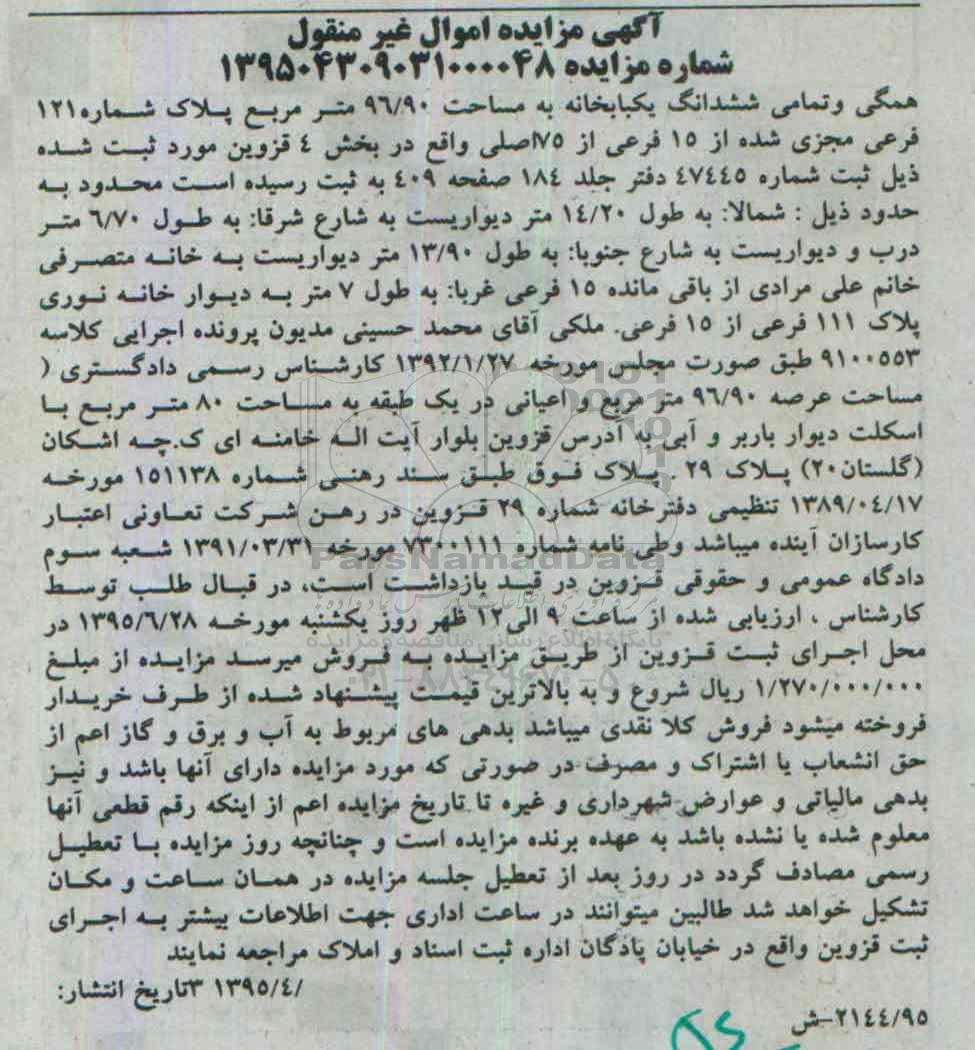 آگهی مزایده اموال غیر منقول
شماره مزایده ۱۳۹۵۰۴۳۰۹۰۳۱۰۰۰۰۴۸
همگی وتمامی ششدانگ یکبابخانه به مساحت ۹۶/۹۰ متر مربع پلاک شماره۱۲۱
فرعی مجزی شده از ۱۵ فرعی از ۷۵اصلی واقع در بخش ٤ قزوین مورد ثبت شده
ذیل ثبت شماره ٤٧٤٤٥ دفتر جلد ۱۸٤ صفحه ٤۰۹ به ثبت رسیده است محدود به
حدود ذیل : شمالا: به طول ۱٤/۲۰ متر دیواریست به شارع شرقا: به طول ۶/۷۰ متر
درب و دیواریست به شارع جنوبا: به طول ۱۳/۹۰ متر دیواریست به خانه متصرفی
خانم علی مرادی از باقی مانده ۱۵ فرعی غربا: به طول ۷ متر به دیوار خانه نوری
پلاک ۱۱۱ فرعی از ۱۵ فرعی. ملکی آقای محمد حسینی مدیون پرونده اجرایی کلاسه
۹۱۰۰۵۵۳ طبق صورت مجلس مورخه ۱۳۹۲/۱/۲۷ کارشناس رسمی دادگستری (
مساحت عرصه ۹۶/۹۰ متر مربع و اعیانی در یک طبقه به مساحت ۸۰ متر مربع با
اسکلت دیوار باربر و آبی به آدرس قزوین بلوار آیت اله خامنه ای ک.چه اشکان
(گلستان۲۰) پلاک ۲۹ . پلاک فوق طبق سند رهنی شماره ۱۵۱۱۳۸ مورخه
۱۳۸۹/۰٤/۱۷ تنظیمی دفترخانه شماره ۲۹ قزوین در رهن شرکت تعاونی اعتبار
کارسازان آینده میباشد وطی نامه شماره ۷۳۰۰۱۱۱ مورخه ۱۳۹۱/۰۳/۳۱ شعبه سوم
دادگاه عمومی و حقوقی قزوین در قید بازداشت است، در قبال طلب توسط
کارشناس ، ارزیابی شده از ساعت ۹ الی۱۲ ظهر روز یکشنبه مورخه ۱۳۹۵/۶/۲۸ در
محل اجرای ثبت قزوین از طریق مزایده به فروش میرسد مزایده از مبلغ
۱/۲۷۰/۰۰۰/۰۰۰ ریال شروع و به بالاترین قیمت پیشنهاد شده از طرف خریدار
فروخته میشود فروش کلا نقدی میباشد بدهی های مربوط به آب و برق و گاز اعم از
حق انشعاب یا اشتراک و مصرف در صورتی که مورد مزایده دارای آنها باشد و نیز
بدهی مالیاتی و عوارض شهرداری و غیره تا تاریخ مزایده اعم از اینکه رقم قطعی آنها
معلوم شده یا نشده باشد به عهده برنده مزایده است و چنانچه روز مزایده با تعطیل
رسمی مصادف گردد در روز بعد از تعطیل جلسه مزایده در همان ساعت و مکان
تشکیل خواهد شد طالبین میتوانند در ساعت اداری جهت اطلاعات بیشتر به اجرای
ثبت قزوین واقع در خیابان پادگان اداره ثبت اسناد و املاک مراجعه نمایند
/۱۳۹۵/٤ ۳تاریخ انتشار:
۲۱٤٤/۹۵-ش
ParsNamadData
پایگاه اطلاع رسانی مناقصه و مزایده